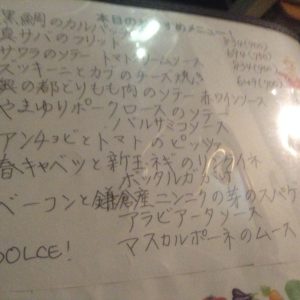 本日のおすすめメニュー!
黒鯛のカルパッチョ
真サバのフリット
サワラのソテー トマトクリームソース
ズッキーニとカブのチーズ焼き
都どりもも肉のソテー 赤ワインソース
やまゆりポークロースのソテー
バルサミコソース
アンチョビとトマトのピッツァ
春キャベツと新玉ネギのリングイネ
ボッタルガ
ベーコンと鎌倉産ニンニクの芽のスパゲ
アラビアータソース
DOLCE!
マスカルポーネのムース